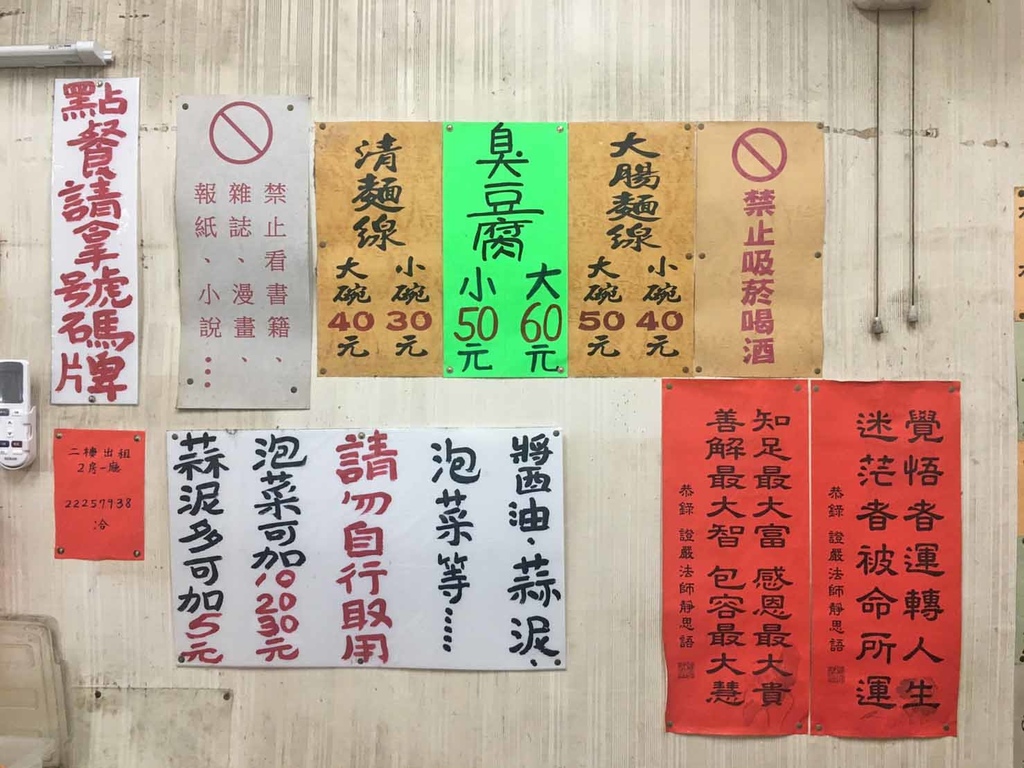 點餐請拿號碼牌
禁止看書籍、
雜誌、漫畫、
報紙、小說…
清麵線
小碗30元
大碗40元
臭豆腐
大60元
小50元
大腸麵線
小碗40元
大碗50元
禁止吸菸喝酒
二樓出租
2房一廳
22257938
洽
醬油、蒜泥、
泡菜等……
請勿自行取用
泡菜可加10 20 30元
蒜泥多可加5元
覺悟者運轉人生
迷茫者被命所運
恭錄 證嚴法師靜思語
知足最大富 感恩最大貴
善解最大智 包容最大慧
恭錄 證嚴法師靜思語